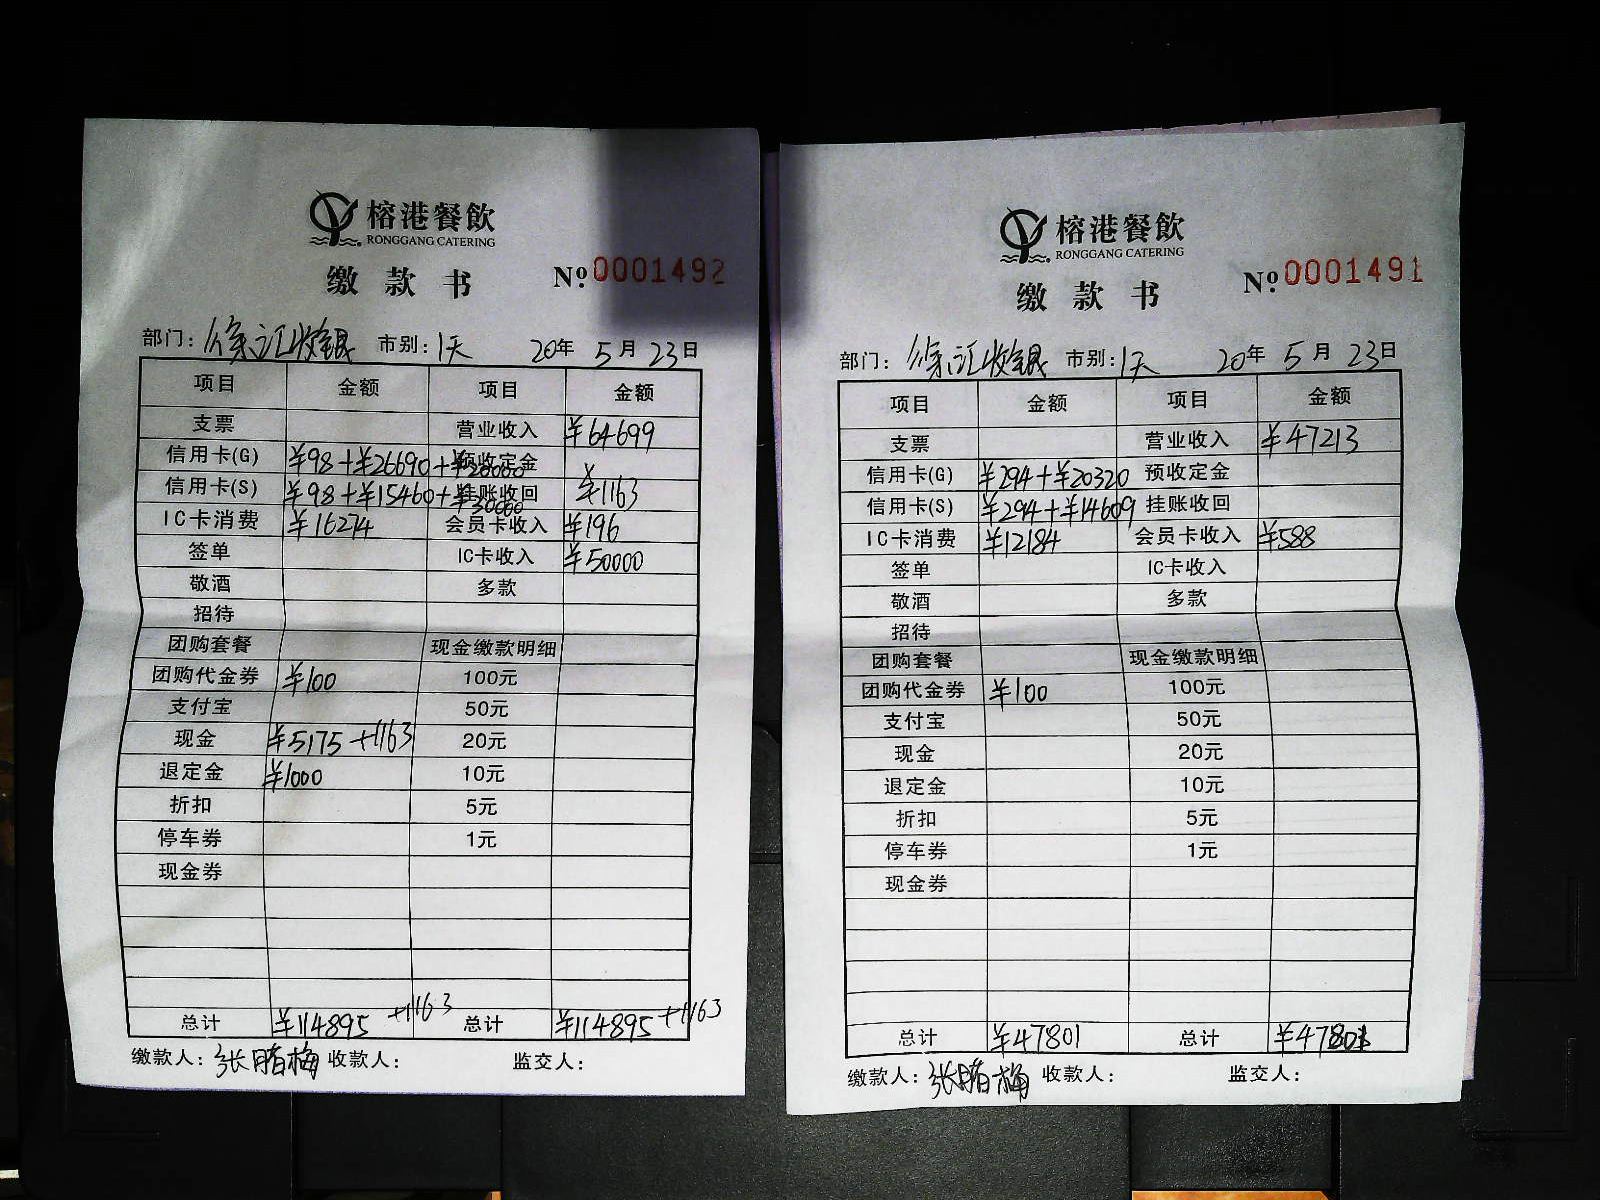 榕港餐飲
RONGGANG CATERING
缴款书 № 0001492
部门: 徐汇收银 市别: 1天 20年 5月 23日
项目 金额 项目 金额
支票 营业收入 ¥64699
信用卡(G) ¥98+¥26690+¥20000 预收定金
信用卡(S) ¥98+¥15460+¥30000 挂账收回 ¥1163
IC卡消费 ¥16274 会员卡收入 ¥196
签单 IC卡收入 ¥50000
敬酒 多款
招待
团购套餐 现金缴款明细
团购代金券 ¥100 100元
支付宝 50元
现金 ¥5175+1163 20元
退定金 ¥1000 10元
折扣 5元
停车券 1元
现金券
总计 ¥114895+1163 总计 ¥114895+1163
缴款人: 张 梅 收款人: 监交人:
榕港餐飲
RONGGANG CATERING
缴款书 № 0001491
部门: 徐汇收银 市别: 1天 20年 5月 23日
项目 金额 项目 金额
支票 营业收入 ¥47213
信用卡(G) ¥294+¥20320 预收定金
信用卡(S) ¥294+¥14609 挂账收回
IC卡消费 ¥12184 会员卡收入 ¥588
签单 IC卡收入
敬酒 多款
招待
团购套餐 现金缴款明细
团购代金券 ¥100 100元
支付宝 50元
现金 20元
退定金 10元
折扣 5元
停车券 1元
现金券
总计 ¥47801 总计 ¥47801
缴款人: 张 梅 收款人: 监交人: